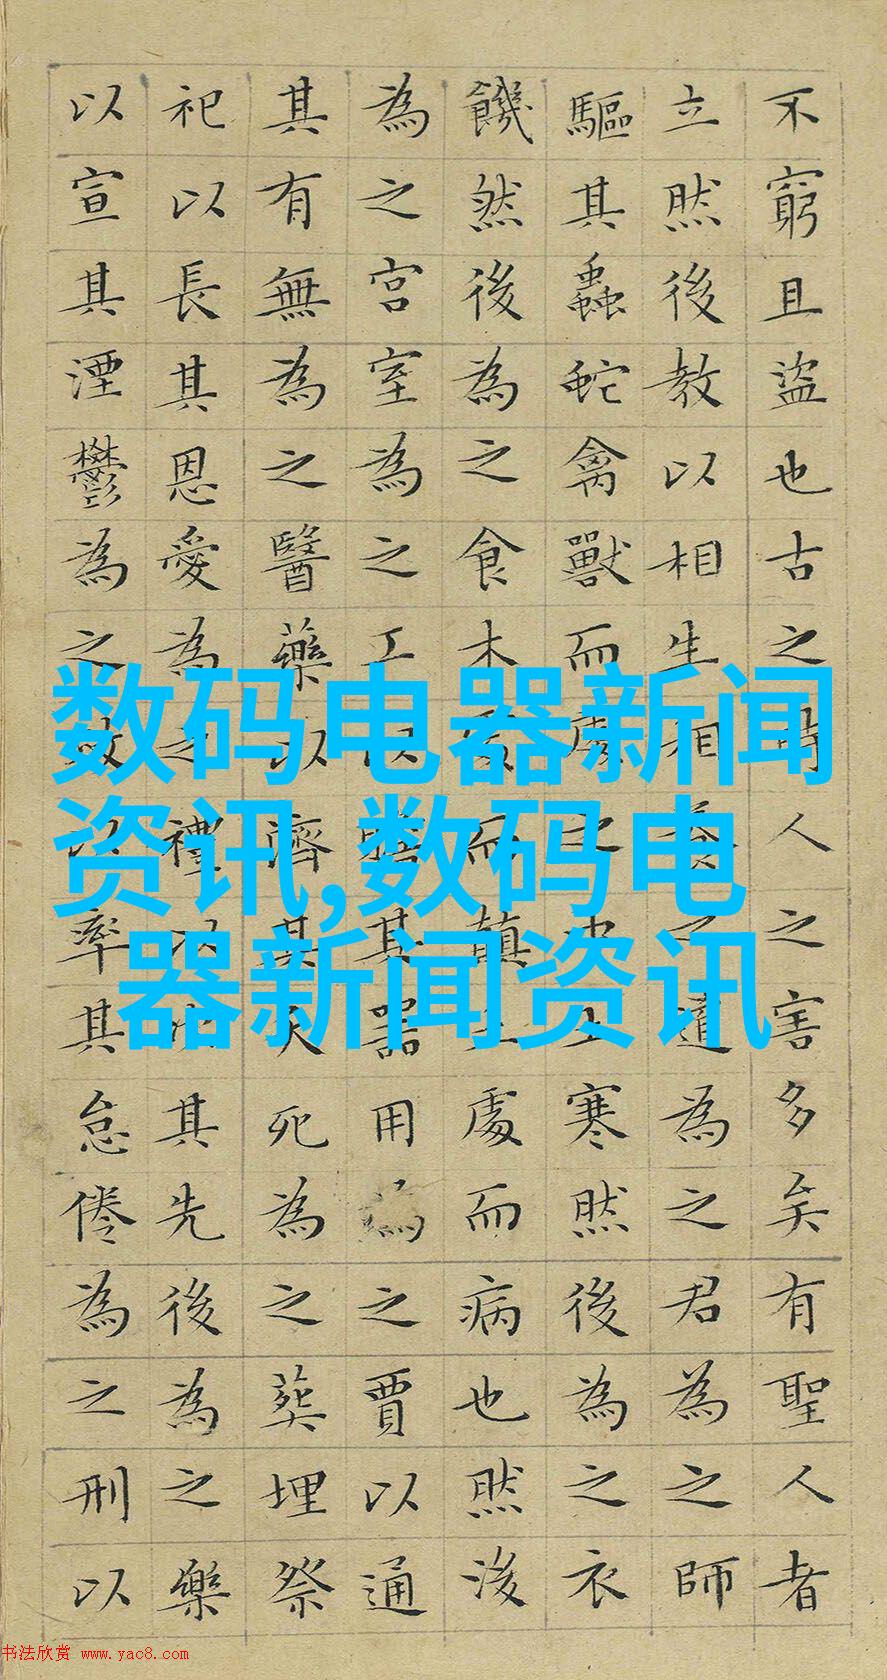 不窮且盜也古之時人之害多矣有聖人者
立然後教以相生相養之道為之君為之師
驅其蟲蛇禽獸而處之中土寒然後為之衣
饑然後為之食木處而顛土處而病也然後
為之宮室為之工以贍其器用為之賈以通
其有無為之醫藥以濟其夭死為之葬埋祭
祀以長其恩愛為之禮以次其先後為之樂
以宣其湮鬱為之政以率其怠倦為之刑以
数码电器新闻
资讯,数码电
器新闻资讯
书法欣赏 www.yac8.com